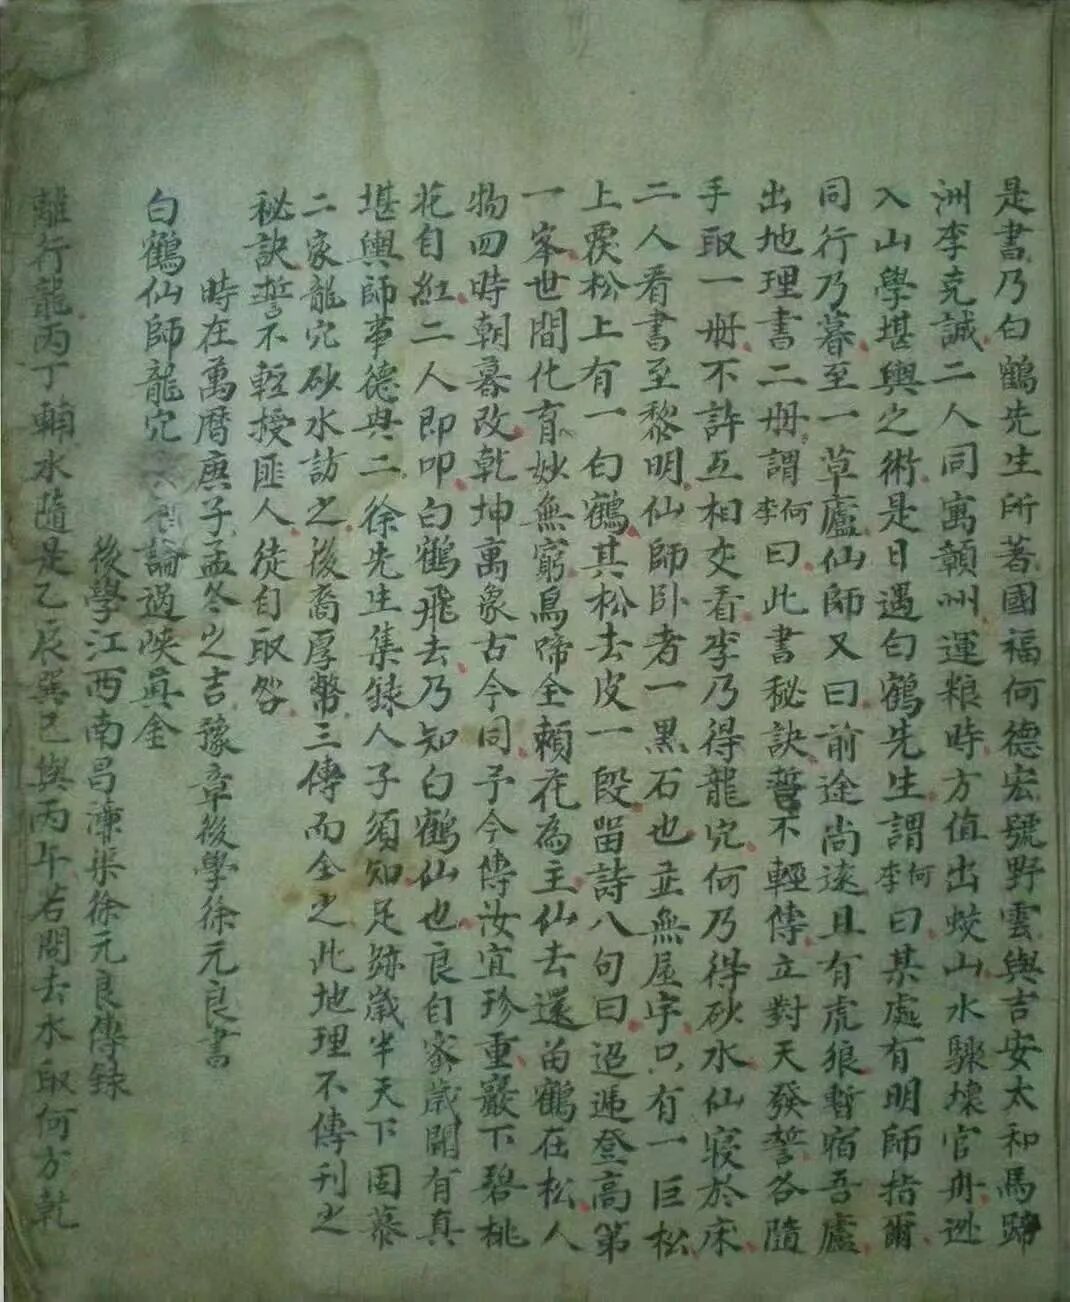 是書乃白鶴先生所著國福何德宏號野雲與吉安太和馬蹄
洲李克誠二人同寓贛州運粮時方值出蛟山水驟壞官舟逃
入山學堪輿之術是日遇白鶴先生謂李何曰某處有明師指爾
同行乃暮至一草廬仙師又曰前途尚遠且有虎狼暫宿吾廬
出地理書二册謂李何曰此書秘訣誓不輕傳立對天發誓各隨
手取一册不許互相交看李乃得龍穴何乃得砂水仙寢於床
二人看書至黎明仙師卧者一黑石也並無屋宇只有一巨松
上覆松上有一白鶴其松去皮一段留詩八句曰迢遞登高第
一峯世間化育妙無窮鳥啼全賴花為主仙去還畄鶴在松人
物四時朝暮改乾坤萬象古今同予今傳汝宜珍重巖下碧桃
花自紅二人即叩白鶴飛去乃知白鶴仙也良自客歲聞有真
堪輿師葦德與二徐先生集録人子須知足跡歲半天下因慕
二家龍穴砂水訪之後裔厚幣三傳而全之此地理不傳刊之
秘訣誓不輕授匪人徒自取咎
時在萬曆庚子孟冬之吉豫章後學徐元良書
白鶴仙師龍穴論過峽真金
後學江西南昌溓渠徐元良傳録
離行龍丙丁輔水隨是乙辰巽巳與丙午若問去水取何方乾